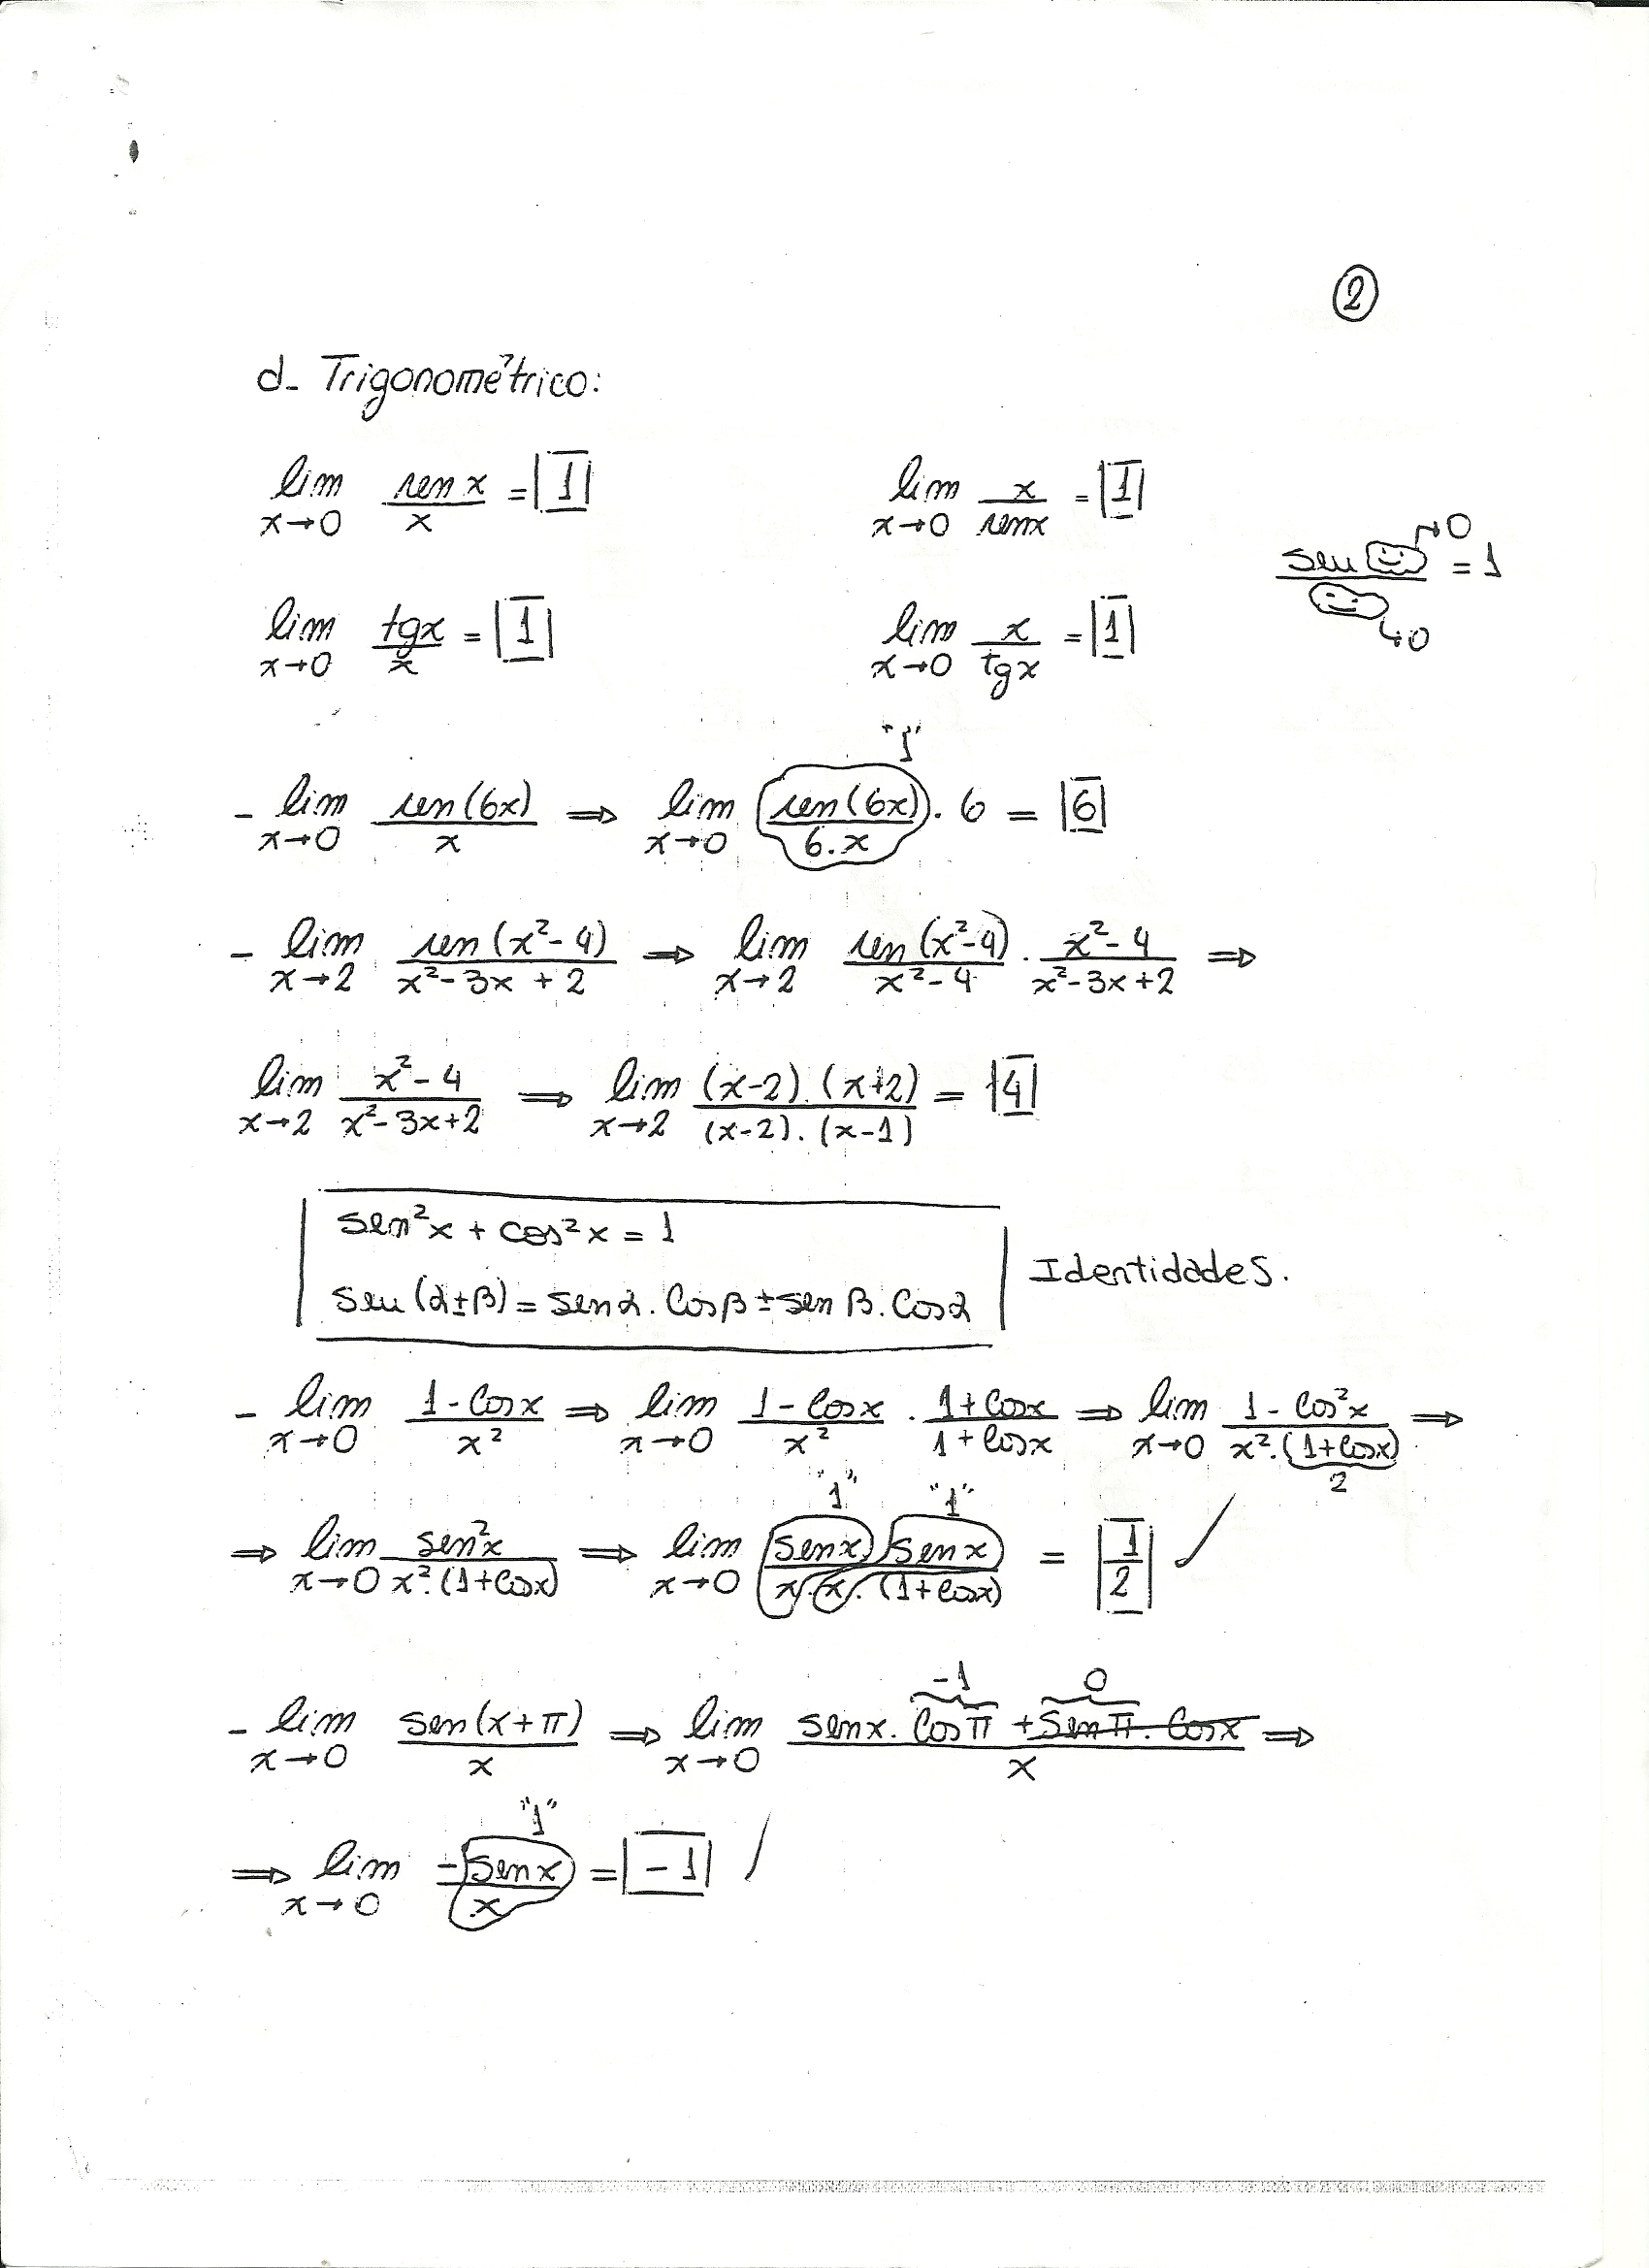 ②
d- Trigonométrico:
lim x→0 sen x / x = |1|    lim x→0 x / senx = |1|
sen ☺ →0 / ☺ →0 = 1
lim x→0 tgx / x = |1|    lim x→0 x / tgx = |1|
"1"
- lim x→0 sen(6x) / x ⇒ lim x→0 sen(6x) / 6.x . 6 = |6|
- lim x→2 sen(x²-4) / x²-3x+2 ⇒ lim x→2 sen(x²-4) / x²-4 . x²-4 / x²-3x+2 ⇒
lim x→2 x²-4 / x²-3x+2 ⇒ lim x→2 (x-2).(x+2) / (x-2).(x-1) = |4|
sen²x + cos²x = 1
sen(α±β) = senα.cosβ ± senβ.cosα
Identidades.
- lim x→0 1-cosx / x² ⇒ lim x→0 1-cosx / x² . 1+cosx / 1+cosx ⇒ lim x→0 1-cos²x / x².(1+cosx) ⇒
2
"1" "1"
⇒ lim x→0 sen²x / x².(1+cosx) ⇒ lim x→0 senx.senx / x.x.(1+cosx) = |1/2| ✓
-1 0
- lim x→0 sen(x+π) / x ⇒ lim x→0 senx.cosπ + senπ.cosx / x ⇒
"1"
⇒ lim x→0 -senx / x = |-1| /